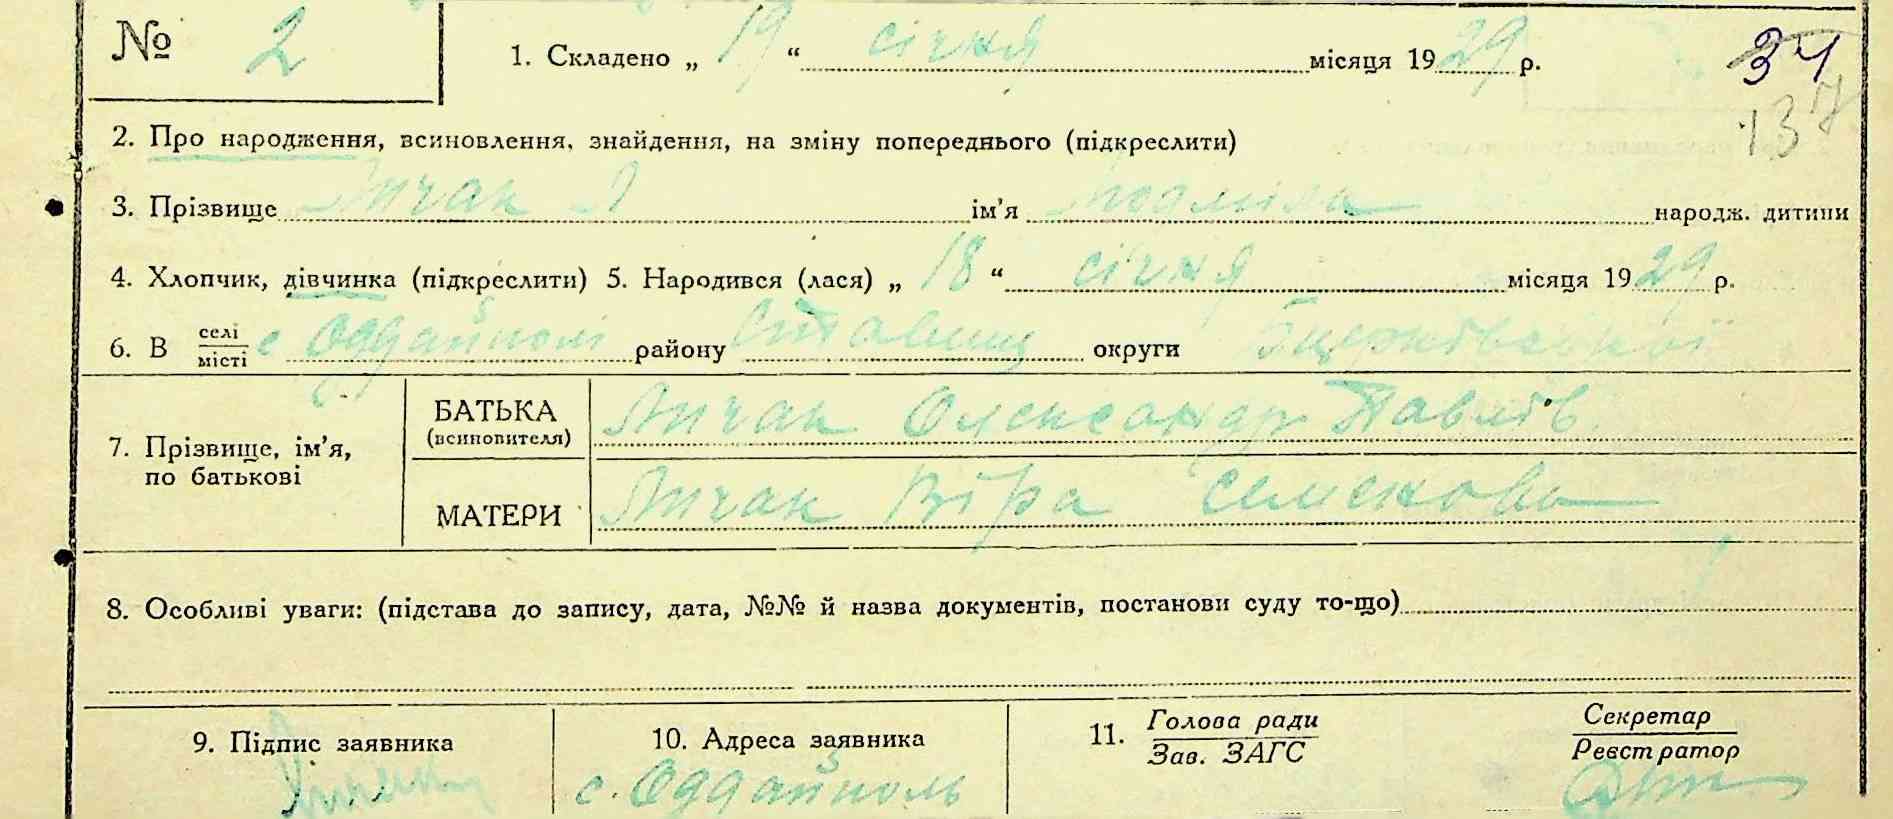 № 2
1. Складено „ 19 “ січня місяця 1929 р.
34
137
2. Про народження, всиновлення, знайдення, на зміну попереднього (підкреслити)
3. Прізвище Личак Л ім'я Людміла народж. дитини
4. Хлопчик, дівчинка (підкреслити) 5. Народився (лася) „ 18 “ січня місяця 1929 р.
6. В селі/місті с Оддайполі району Ставищ округи Бцерківської
7. Прізвище, ім'я, по батькові
БАТЬКА (всиновителя) Личак Олександр Павлів
МАТЕРИ Личак Віра Семенова
8. Особливі уваги: (підстава до запису, дата, №№ й назва документів, постанови суду то-що)
9. Підпис заявника
10. Адреса заявника
с. Оддайполь
11. Голова ради
Зав. ЗАГС
Секретар
Реєстратор